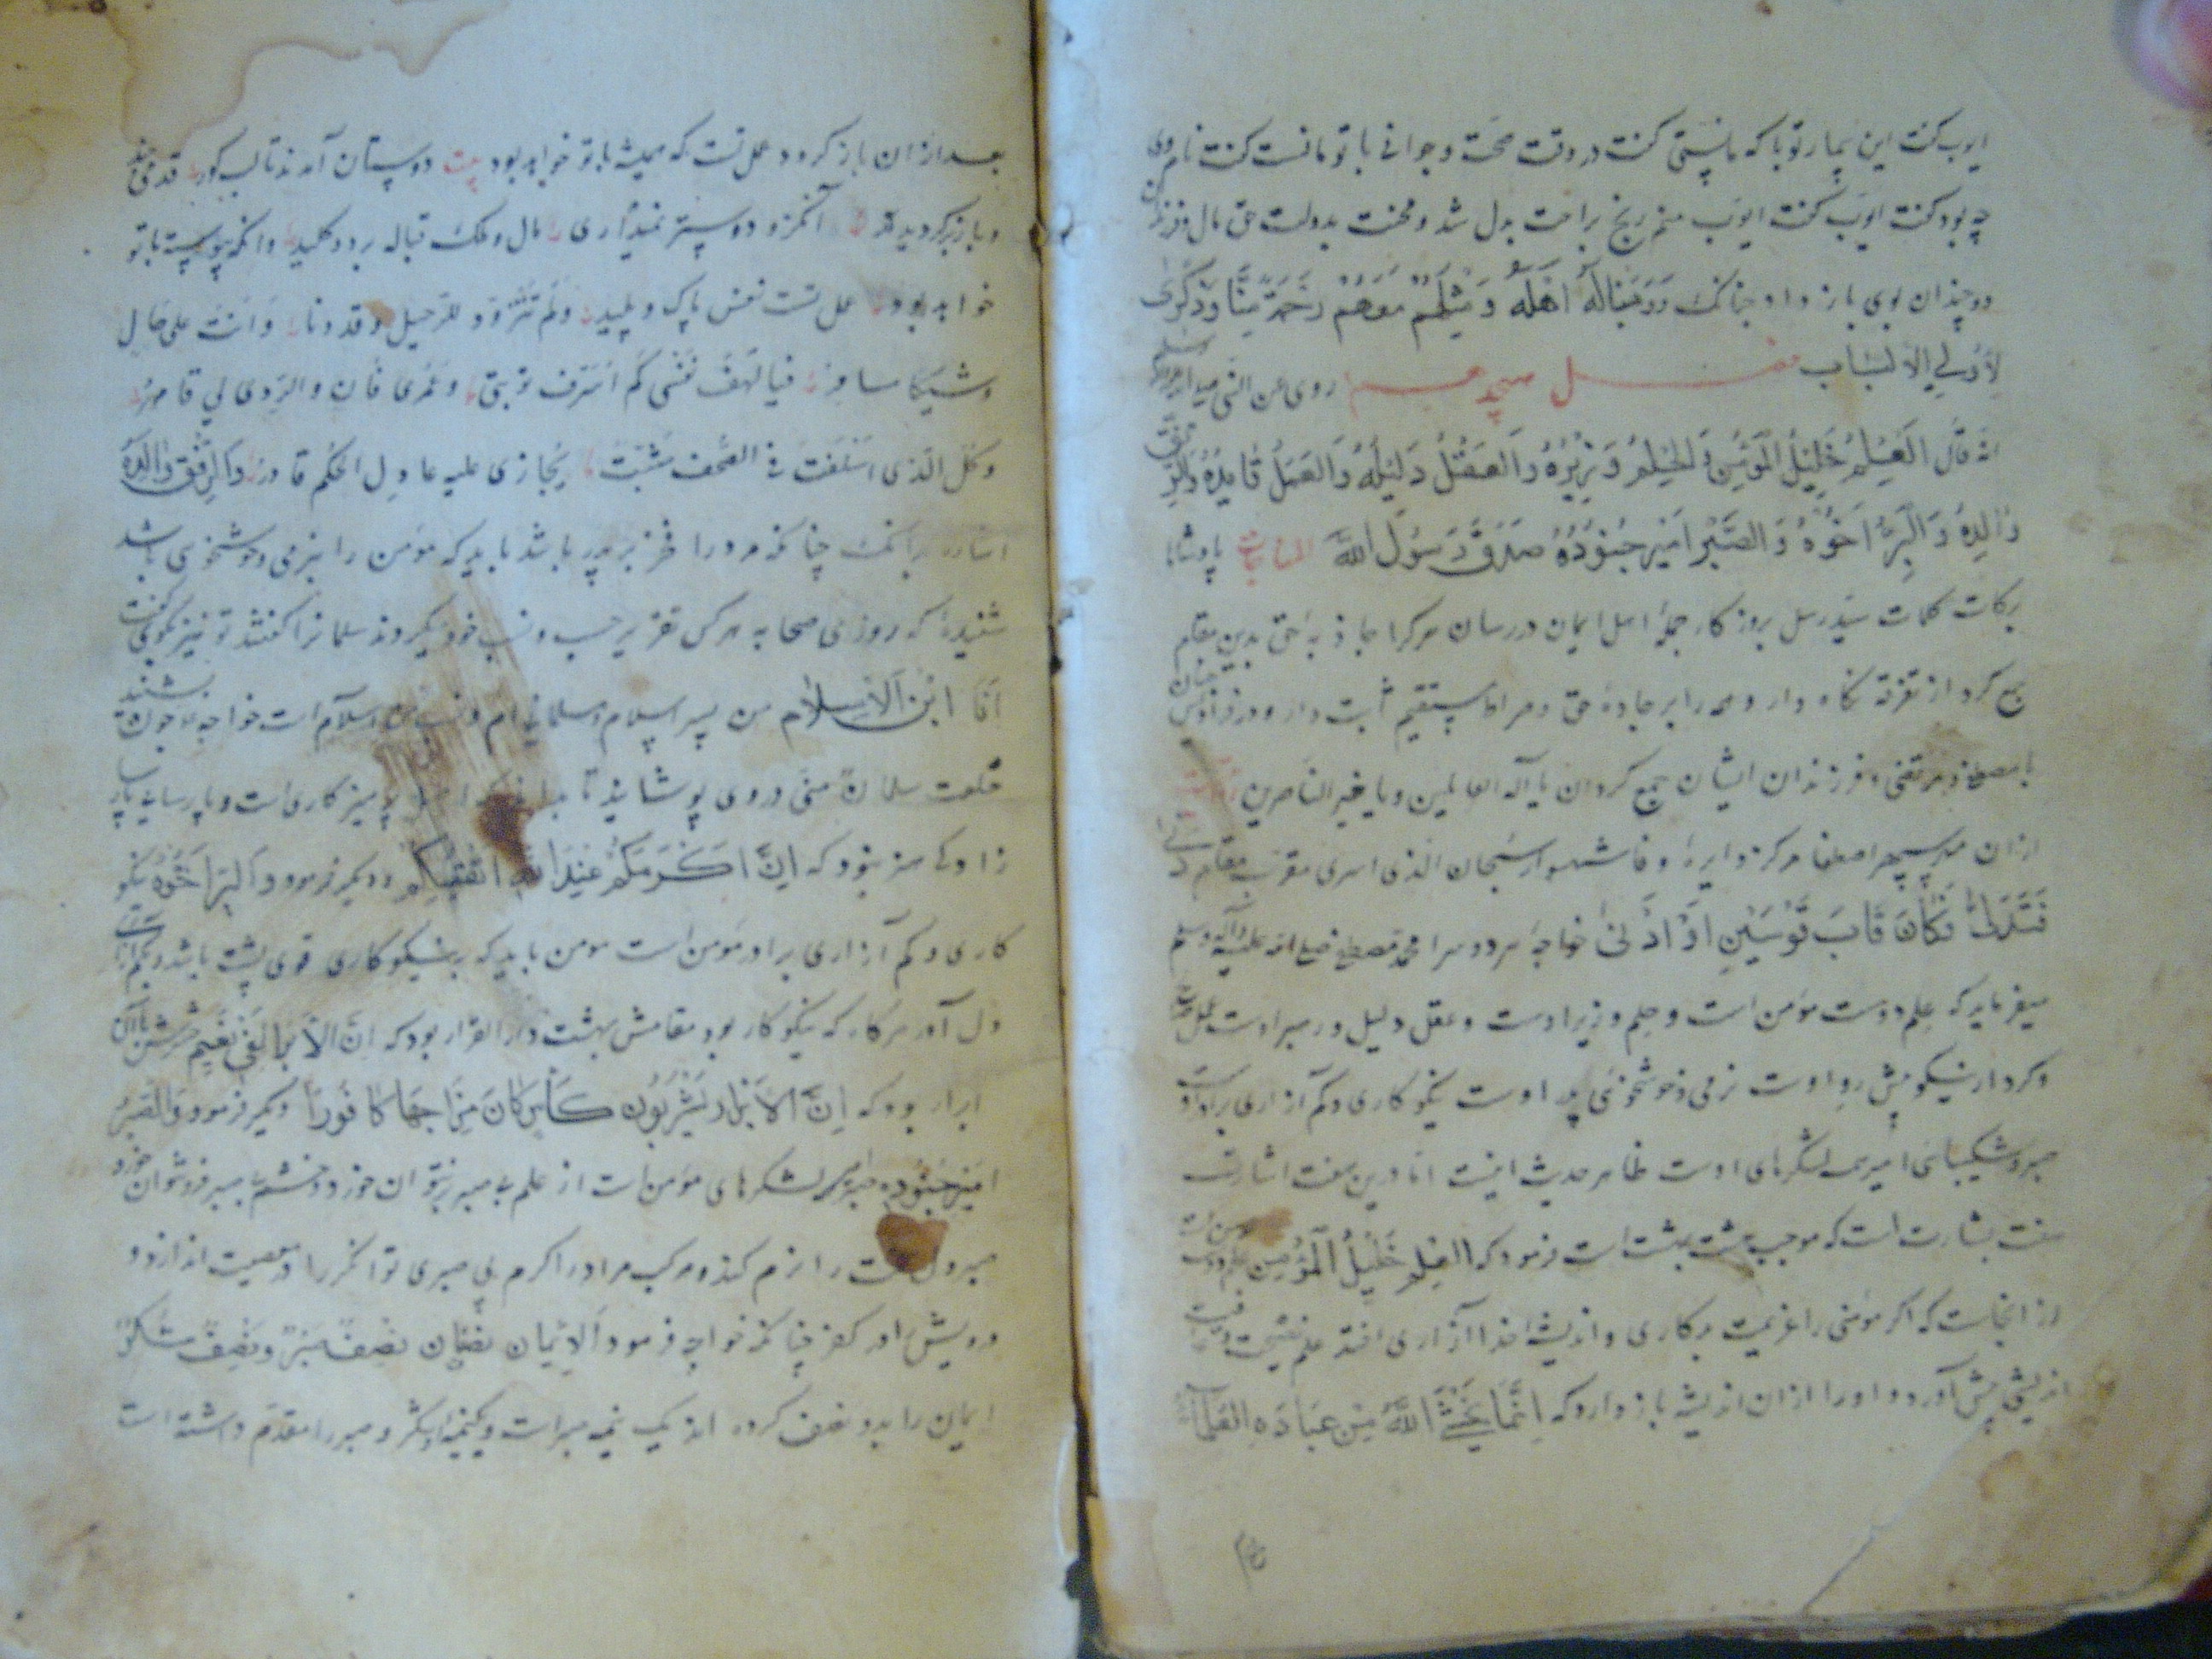 ایوب گفت این بیمار تو با که مانستی گفت در وقت صحت و جوانی با تو مانست گفت نام وی
چه بود گفت ایوب گفت ایوب منم رنج براحت بدل شد و محنت بدولت حق مال و فرزندان
دو چندان بوی باز داد چنانک وَوَهَبْنَا لَهُ اَهْلَهُ وَمِثْلَهُمْ مَعَهُمْ رَحْمَةً مِنَّا وَذِكْرَى
لِاُولِي الْاَلْبَاب فصل هیجدهم روی عن النبی صلی الله علیه وآله وسلم
انه قال اَلْعِلْمُ خَلِيلُ الْمُؤْمِنِ وَالْحِلْمُ وَزِيرُهُ وَالْعَقْلُ دَلِيلُهُ وَالْعَمَلُ قَايِدُهُ وَالرِّفْقُ
وَالِدُهُ وَالْبِرُّ اَخُوهُ وَالصَّبْرُ اَمِيرُ جُنُودِهُ صَدَقَ رَسُولُ اللهِ المناجات پادشاها
برکات کلمات سید رسل بروزکار جملهٔ اهل ایمان در رسان هرکرا جاذبهٔ حق بدین مقام
جمع کرد از تفرقه نگاه دار و همه را بر جادهٔ حق و صراط مستقیم ثابت دار و در فرادیس جنان
با مصطفی و مرتضی و فرزندان ایشان جمع گردان یا اله العالمین ویا خیر الناصرین
ازان سپهر اصطفا مرکز دایرهٔ وفا شهسوار سبحان الذی اسری مقرب مقام دنی
فَتَدَلَّى فَكَانَ قَابَ قَوْسَيْنِ اَوْ اَدْنَى خواجهٔ هر دو سرا محمد مصطفی صلی الله علیه وآله وسلم
میفرماید که علم دوست مؤمن است و حلم وزیر اوست و عقل دلیل و رهبر اوست عمل
و کردار نیکو پیش رو اوست نرمی و خوشخوئی پدر اوست نیکوکاری و کم آزاری برادر اوست
صبر و شکیبائی امیر همه لشکرهای اوست ظاهر حدیث اینست اما درین هفت اشارت
هفت بشارت است که موجب هشت بهشت است فرمود که العلم خَلِيلُ الْمُؤْمِنِ علم دوست مومن است
از انجاست که اگر مؤمنی را عزیمت بدکاری و اندیشهٔ خدا آزاری افتد علم نصیحت
اندیشی پیش آورد و او را ازان اندیشه باز دارد که اِنَّمَا يَخْشَى اللهَ مِنْ عِبَادِهِ العُلَمَاءُ
بعد ازان باز گردد عمل تست که همیشه با تو خواهد بود بیت دوستان آمدند تا لب گور قدمی چند
و باز گردیدند آنکزو دوستر نمیداری مال و ملک قباله برد و کلید وانکه پیوسته با تو
خواهد بود عمل تست نفس پاک و پلید وَلَمْ تَتَزَوَّدْ للرحیل وقد دنا وَاَنْتَ علی حال
وشیکا مسافر فیا لهف نفسی کم اسوف توبتی وعمری فان والردی لی قاهر
وکل الذی اسلفت فی الصحف مثبت یجازی علیه عادل الحکم قادر وَالرِّفْقُ وَالِدُهُ
اشارت برآنک چنانکه مرد را فخر به پدر باشد باید که مؤمن را بنرمی و خوشخوی باشد
شنیدهٔ که روزی صحابه هر کس تقریر حسب و نسب خود میکردند سلمان را گفتند تو نیز بگوی گفت
اَنَا ابْنُ الْاِسْلَام من پسر اسلامم سلمانی ام و نسب من اسلام است خواجه چون بشنید
خلعت سلمان منی در وی پوشانید تا بدانند که اصل پرهیزکاری است و پارسایی
زادگی هنر نبود که اِنَّ اَكْرَمَكُمْ عِنْدَ اللهِ اَتْقَيكُمْ و دیگر فرمود وَالبِرُّ اَخُوهُ نیکو
کاری و کم آزاری برادر مؤمن است مومن باید که بنیکوکاری قوی پشت باشد و بکم آزاری
دل آور هرکار که نیکوکار بود مقامش بهشت دار القرار بود که اِنَّ الْاَبْرَارَ لَفِي نَعِيمٍ شربتش
ابرار بود که اِنَّ الْاَبْرَارَ يَشْرَبُونَ مِنْ كَأْسٍ كَانَ مِزَاجُهَا كَافُورًا دیگر فرمود وَالصَّبْرُ
اَمِيرُ جُنُودِهِ صبر امیر لشکرهای مؤمن است از علم بی صبر بر نتوان خورد و خشم بی صبر فرو نتوان خورد
صبر دل را نرم کند و مرکب مراد را کرم بی صبری توانگر را در معصیت اندازد و
درویش را در کفر چنانکه خواجه فرمود اَلْاِيْمَانُ نِصْفَانِ نِصْفٌ صَبْرٌ وَنِصْفٌ شُكْرٌ
ایمان را بدو نصف کرده اند یک نیمه صبر است و یک نیمه شکر و صبر را مقدم داشته است